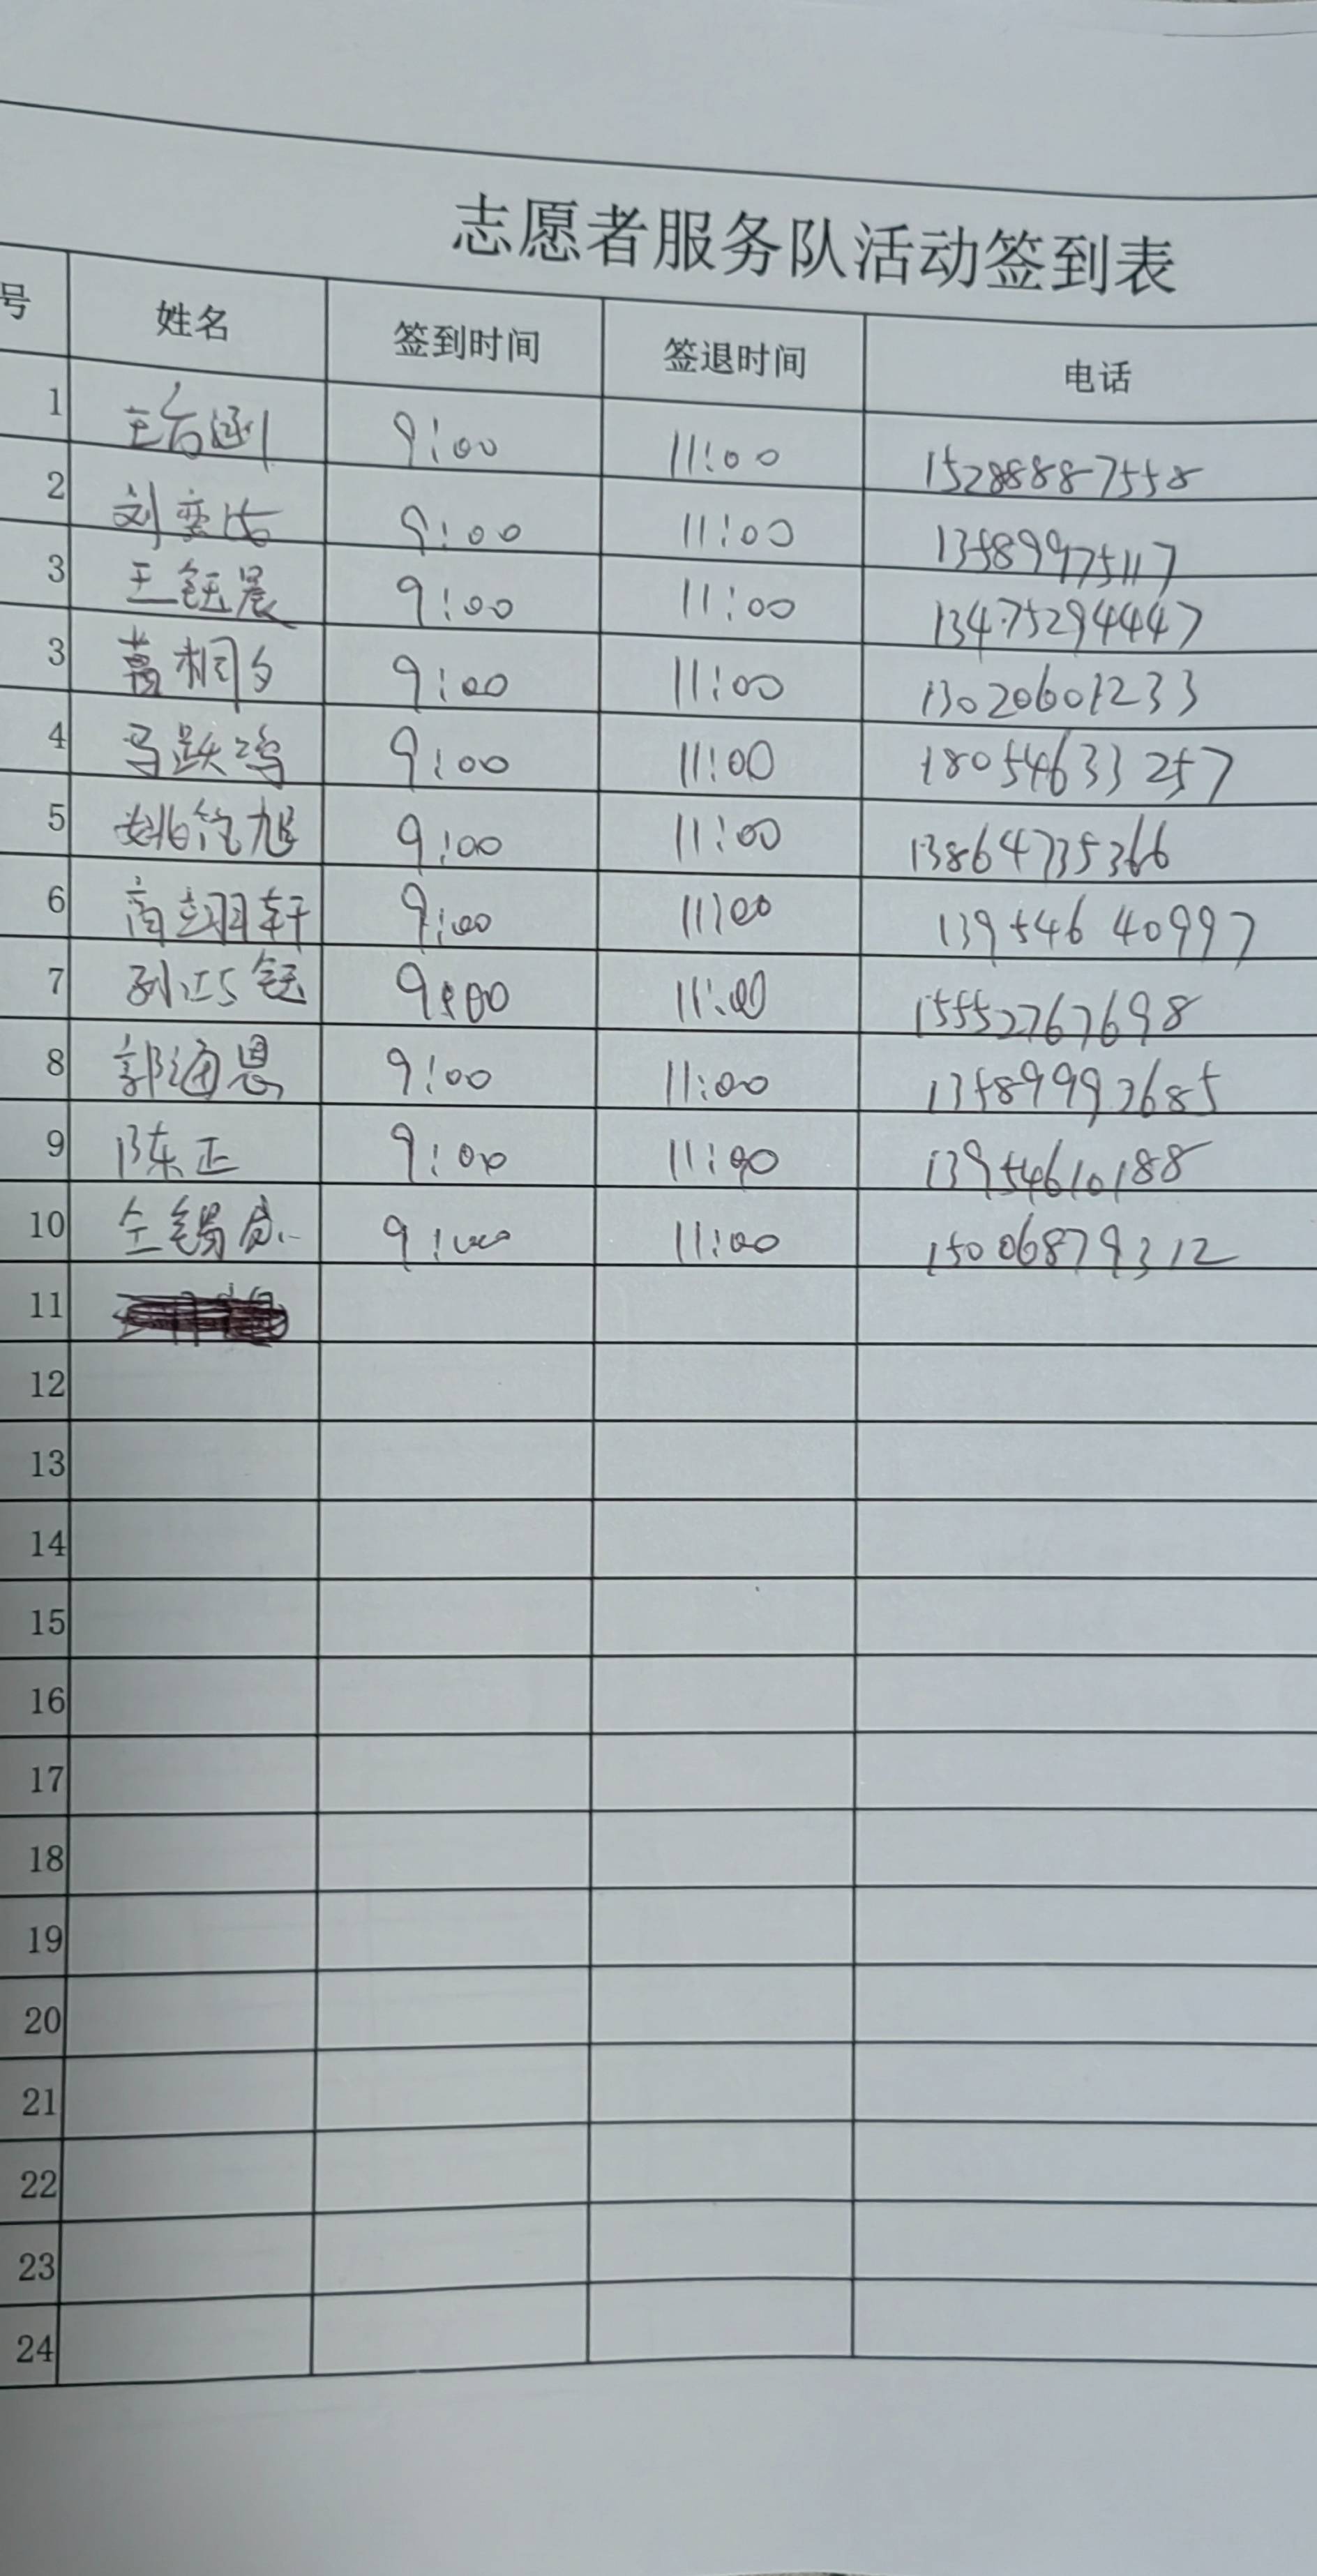 志愿者服务队活动签到表
号 姓名 签到时间 签退时间 电话
1 王 涵 9:00 11:00 15288887558
2 刘奕 9:00 11:00 13589975117
3 王钰晨 9:00 11:00 13475294447
3 葛桐夕 9:00 11:00 13020601233
4 马跃鸣 9:00 11:00 18054633257
5 姚 旭 9:00 11:00 13864735366
6 商翊轩 9:00 11:00 13954640997
7 孙 钰 9:00 11:00 15552767698
8 郭涵恩 9:00 11:00 13589993685
9 陈正 9:00 11:00 13954610188
10 仝锡成 9:00 11:00 15006879312
11
12
13
14
15
16
17
18
19
20
21
22
23
24